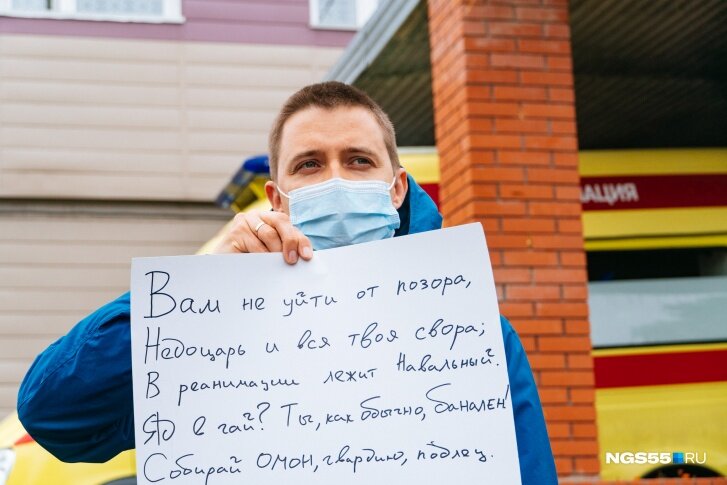 Вам не уйти от позора,
Недоцарь и вся твоя свора;
В реанимации лежит Навальный.
Яд в чай? Ты, как обычно, банален!
Собирай ОМОН, гвардию, подлец.
АЦИЯ
NGS55.RU